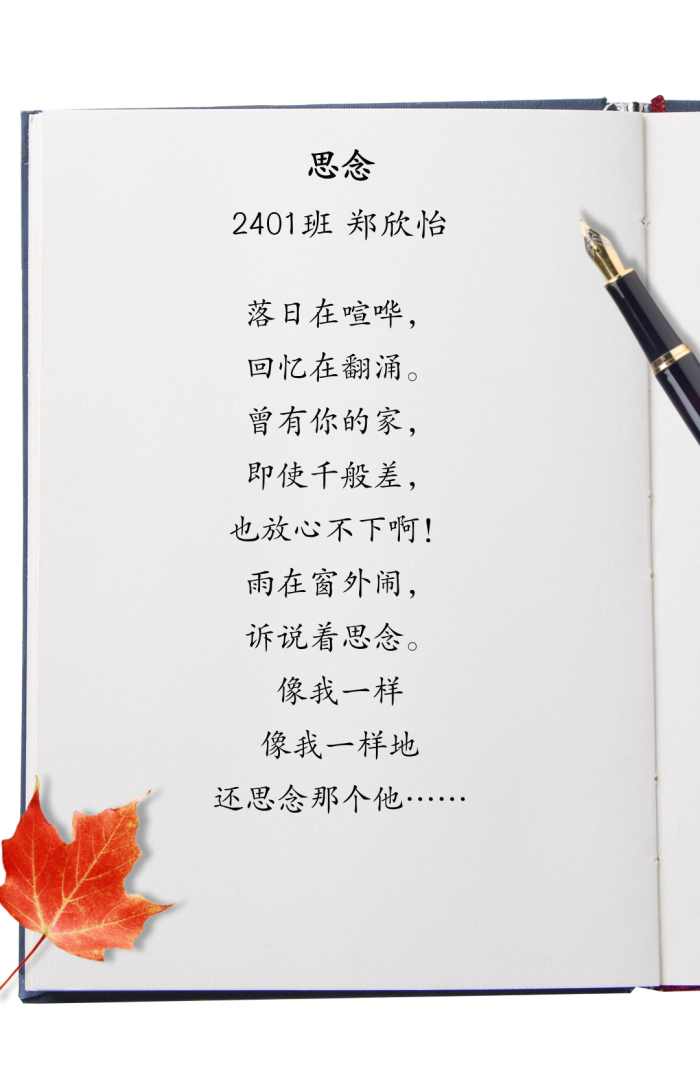 思念
2401班 郑欣怡
落日在喧哗，
回忆在翻涌。
曾有你的家，
即使千般差，
也放心不下啊！
雨在窗外闹，
诉说着思念。
像我一样
像我一样地
还思念那个他……